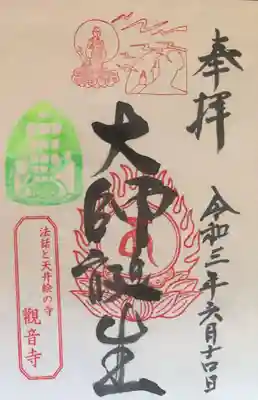 奉拝
令和三年六月十日
大師誕生
法話と天井絵の寺
觀音寺